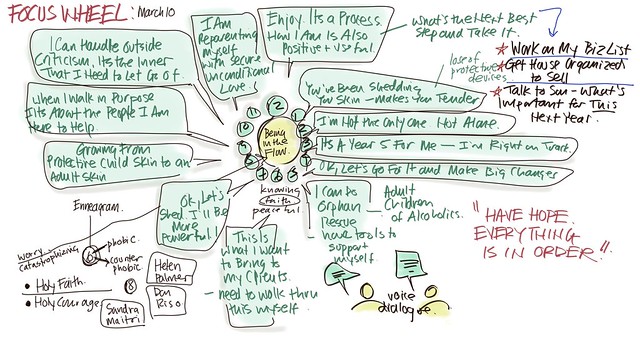 FOCUS WHEEL: March 10
I Can Handle outside
Criticism, Its the Inner
That I Need to Let Go of.
I Am
Reparenting
myself
with secure
unconditional
Love!
Enjoy. Its a Process.
How I Am Is Also
Positive + Useful.
what's the Next Best
Step and Take It.
Work on My Biz List
Get House Organized
to Sell
Talk to Sun - What's
Important for This
Next Year.
lose of
protective
devices
You've Been Shedding
You Skin - Makes You Tender
I'm Not the only one Not Alone.
Its A Year 5 For Me — I'm Right on Track.
OK, Let's Go For It and Make Big Changes
when I walk in Purpose
Its About the People I Am
Here to Help.
Growing From
Protective Child Skin to an
Adult skin
Being
in the
Flow.
12
knowing
faith
peaceful.
OK, Let's
Shed. I'll Be
More
Powerful!
This Is
what I want
to Bring to
my Clients.
- need to walk thru
this myself.
I can be
Orphan
Rescue
- have tools to
support
myself.
Adult
Children
of Alcoholics.
"HAVE HOPE.
EVERYTHING
IS IN ORDER".
voice
dialogue.
Enneagram.
worry
catastrophizing
phobic.
counter
phobic
Holy Faith.
Holy Courage
8
Helen
Palmer
Don
Riso
Sandra
Maitri